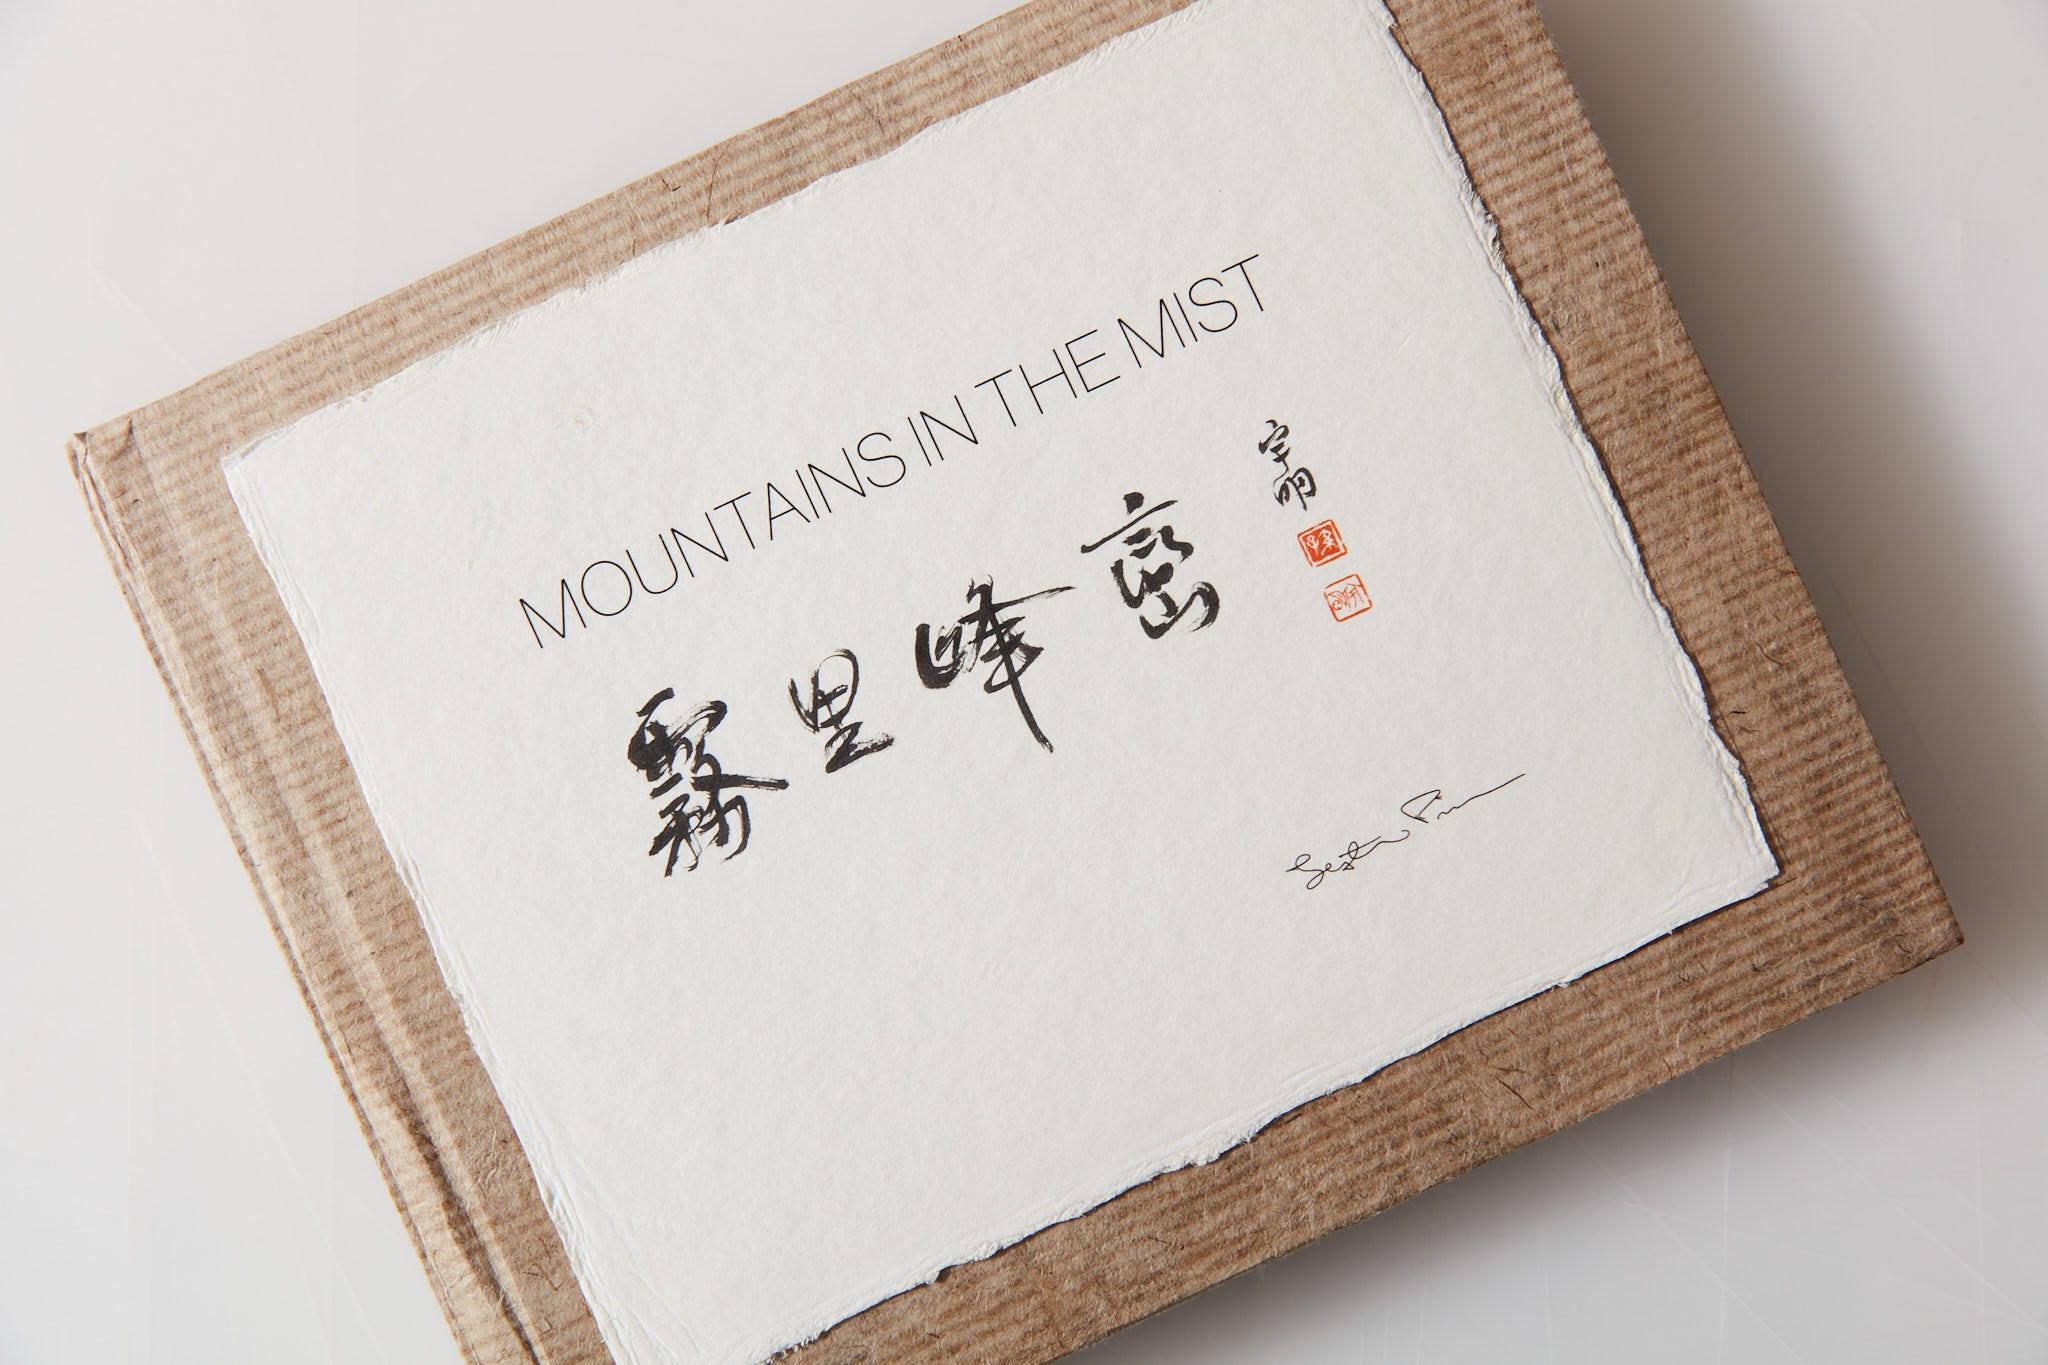 MOUNTAINS IN THE MIST
霧里峰巒
宇明